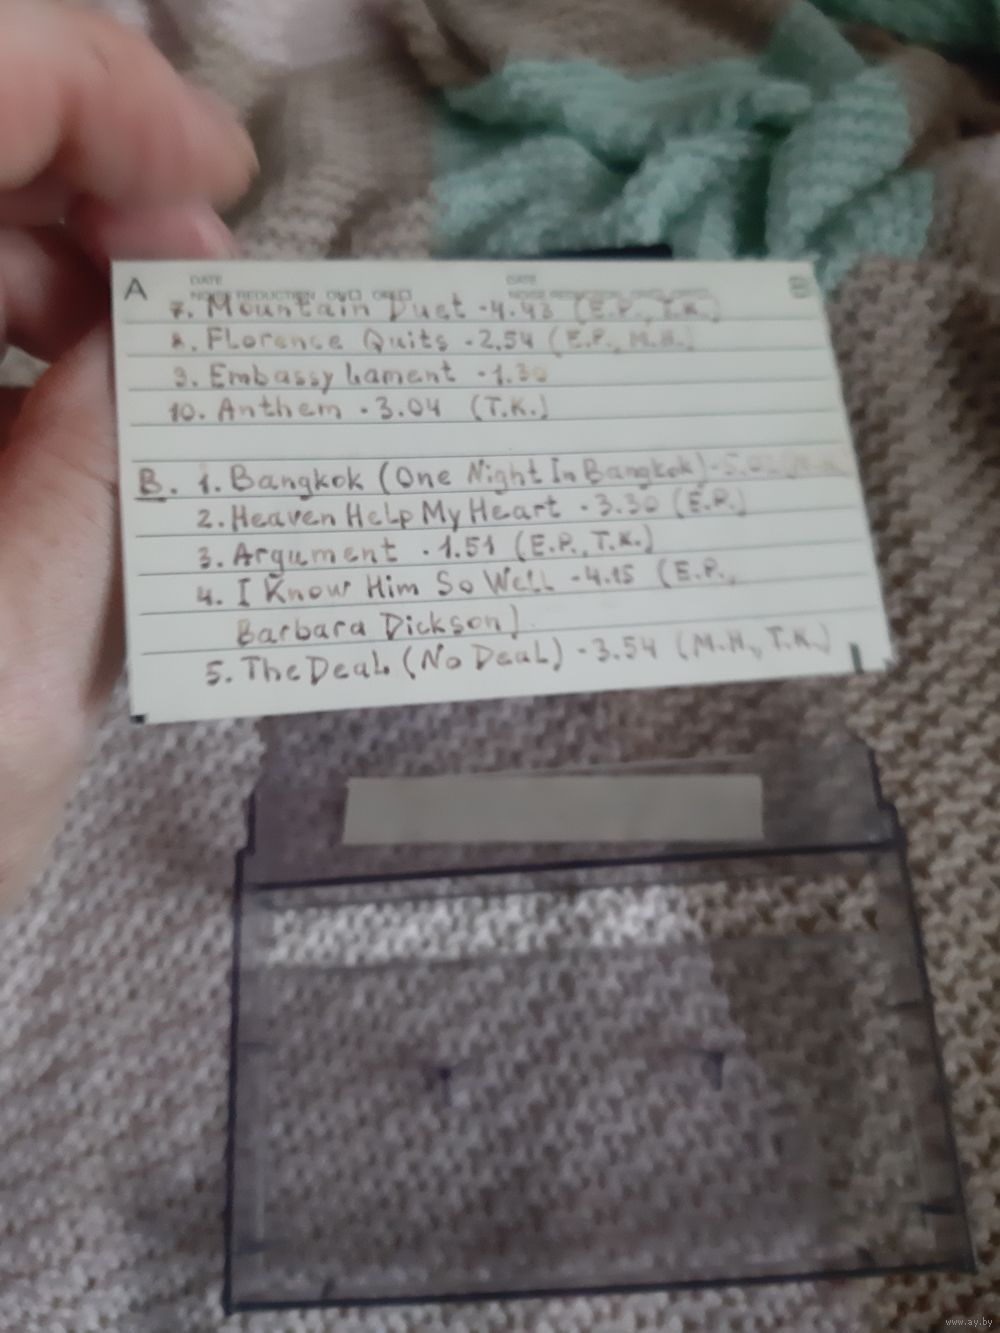 A DATE DATE B
NOISE REDUCTION ON OFF NOISE REDUCTION
7. Mountain Duet - 4.43 (E.P., T.K.)
8. Florence Quits - 2.54 (E.P., M.H.)
9. Embassy Lament - 1.30
10. Anthem - 3.04 (T.K.)
B. 1. Bangkok (One Night In Bangkok) -
2. Heaven Help My Heart - 3.30 (E.P.)
3. Argument - 1.51 (E.P., T.K.)
4. I Know Him So Well - 4.15 (E.P.,
Barbara Dickson)
5. The Deal (No Deal) - 3.54 (M.H., T.K.)
www.ay.by